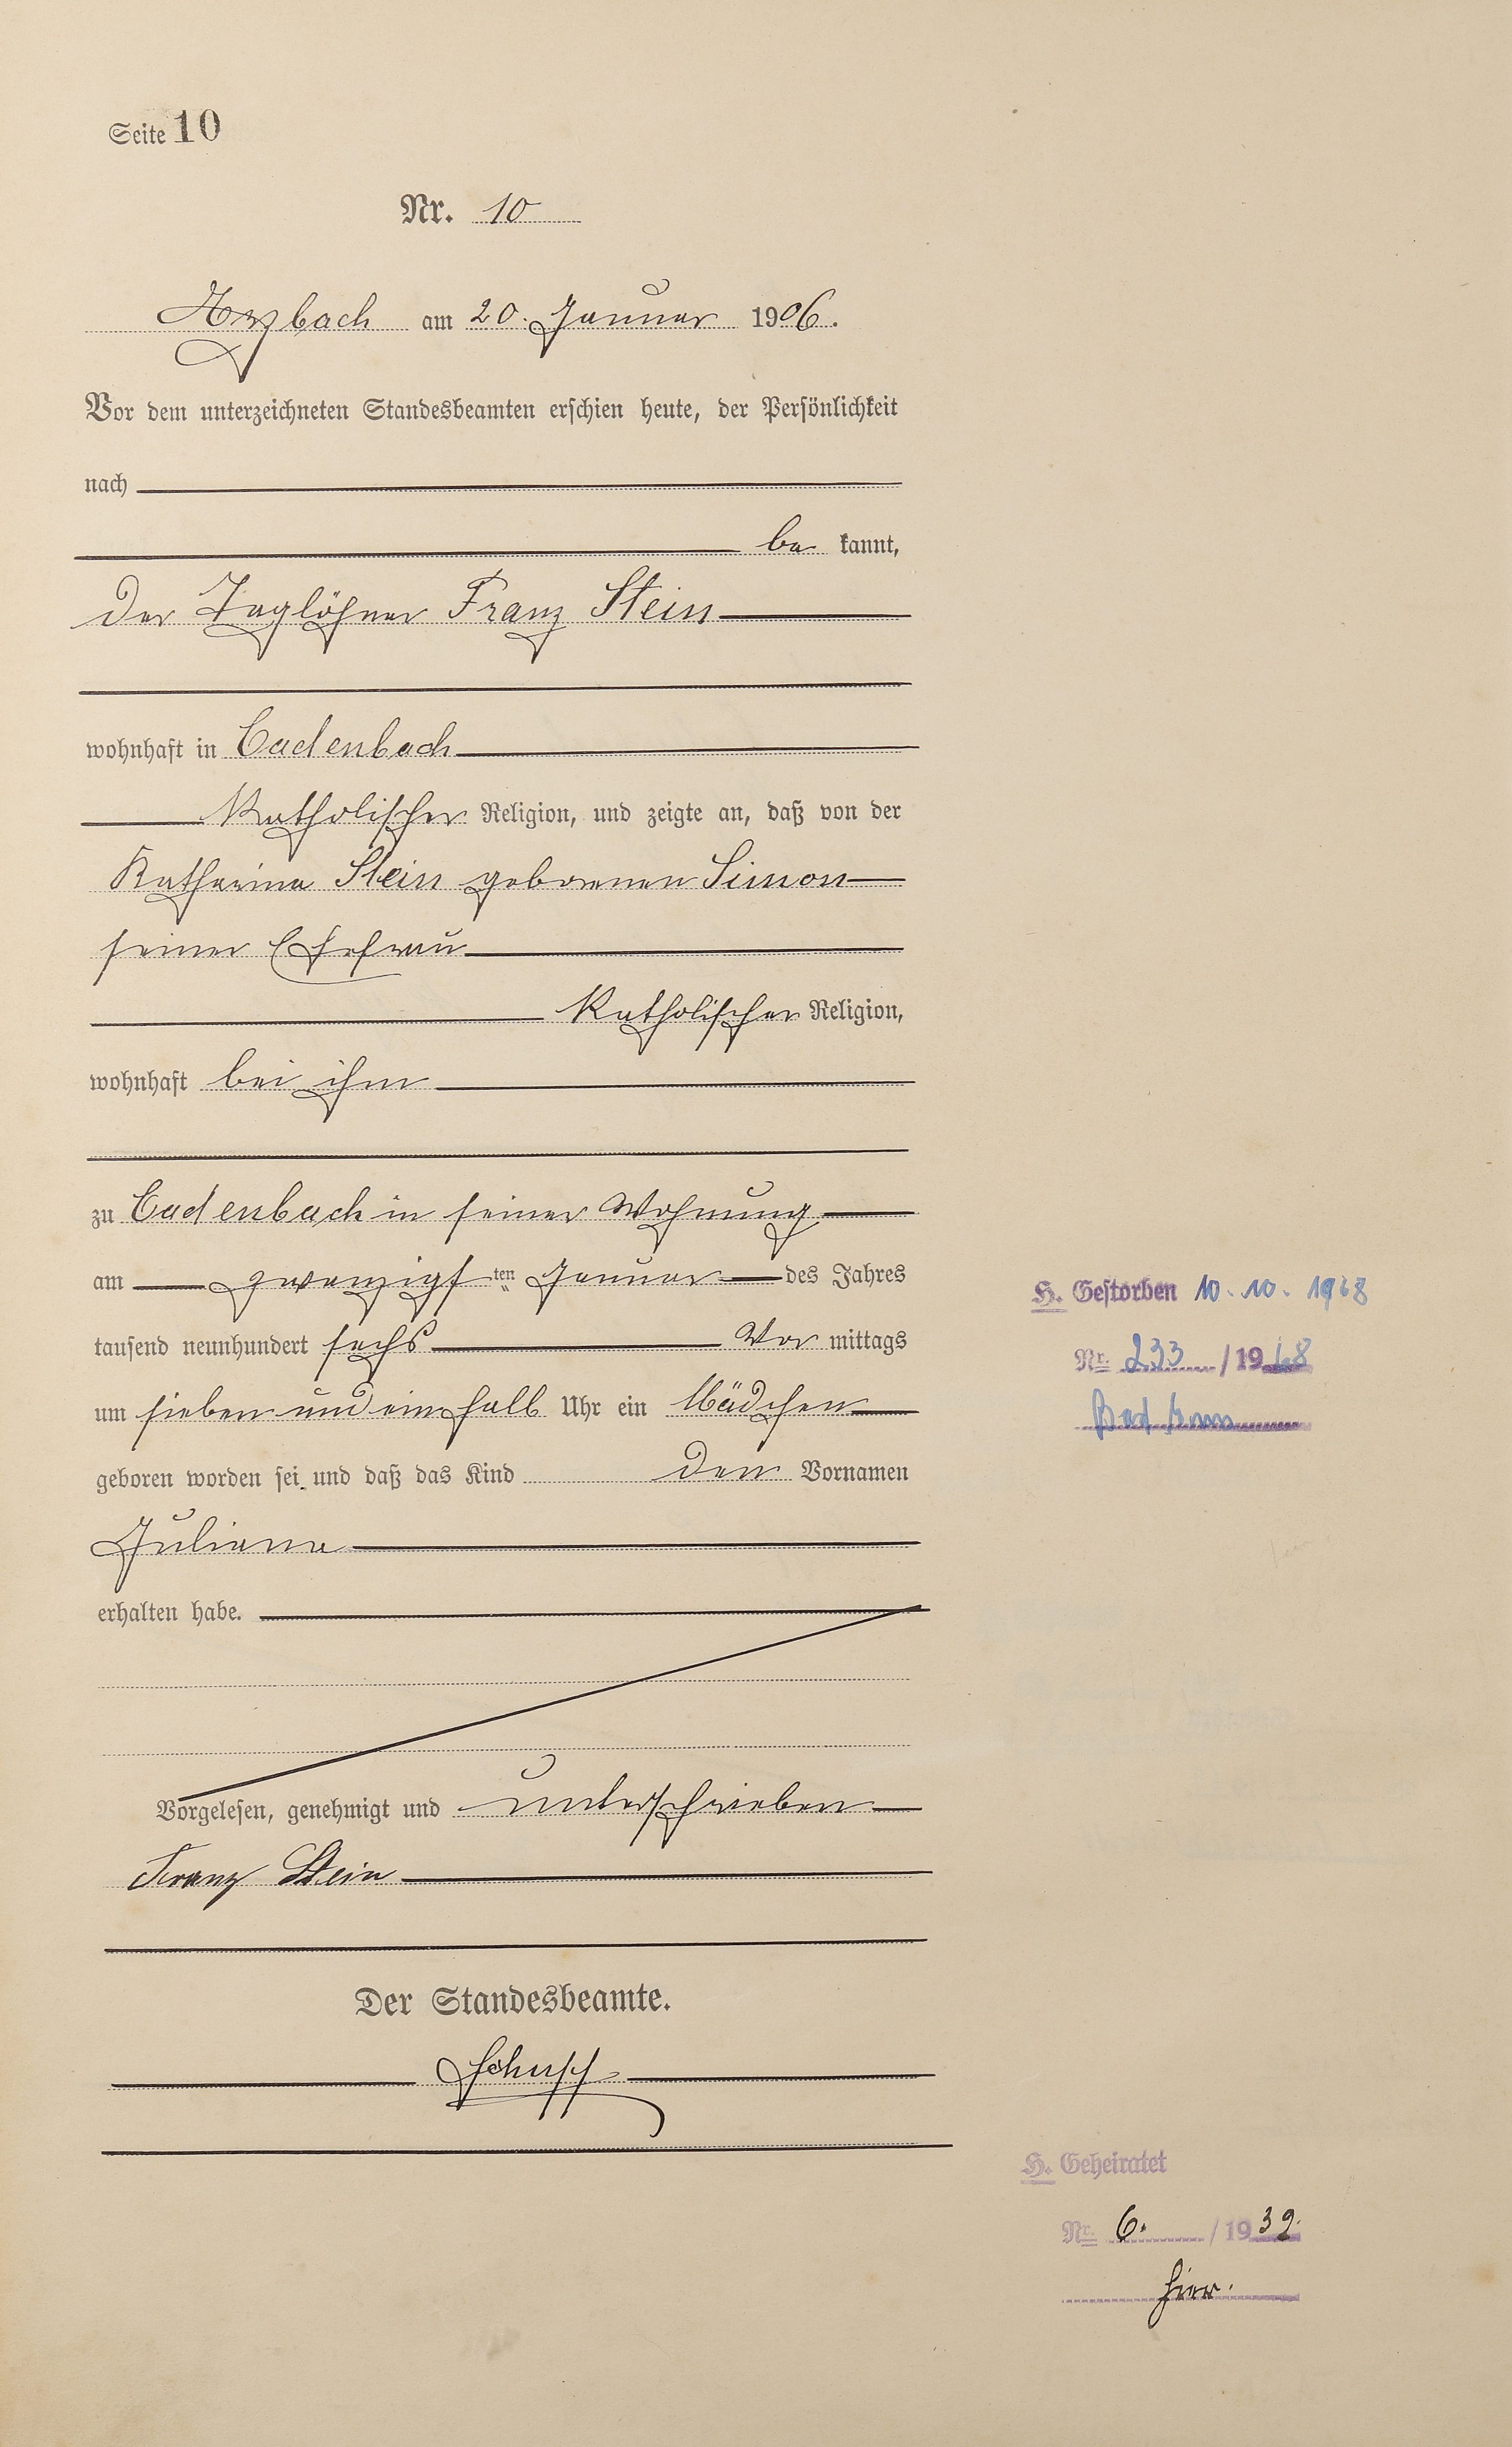 Seite 10
Nr. 10
Arzbach am 20. Januar 1906.
Vor dem unterzeichneten Standesbeamten erschien heute, der Persönlichkeit
nach
be kannt,
der Taglöhner Franz Stein
wohnhaft in Cadenbach
Katholischer Religion, und zeigte an, daß von der
Katharina Stein geborenen Simon
seiner Ehefrau
Katholischer Religion,
wohnhaft bei ihm
zu Cadenbach in seiner Wohnung
am zwanzigsten Januar des Jahres
tausend neunhundert sechs Vor mittags
um sieben und einhalb Uhr ein Mädchen
geboren worden sei und daß das Kind den Vornamen
Juliana
erhalten habe.
Vorgelesen, genehmigt und unterschrieben
Franz Stein
Der Standesbeamte.
Schupp
H. Gestorben 10. 10. 1968
Nr. 233 / 1968
Bad Ems
H. Geheiratet
Nr. 6. / 1939.
hier.